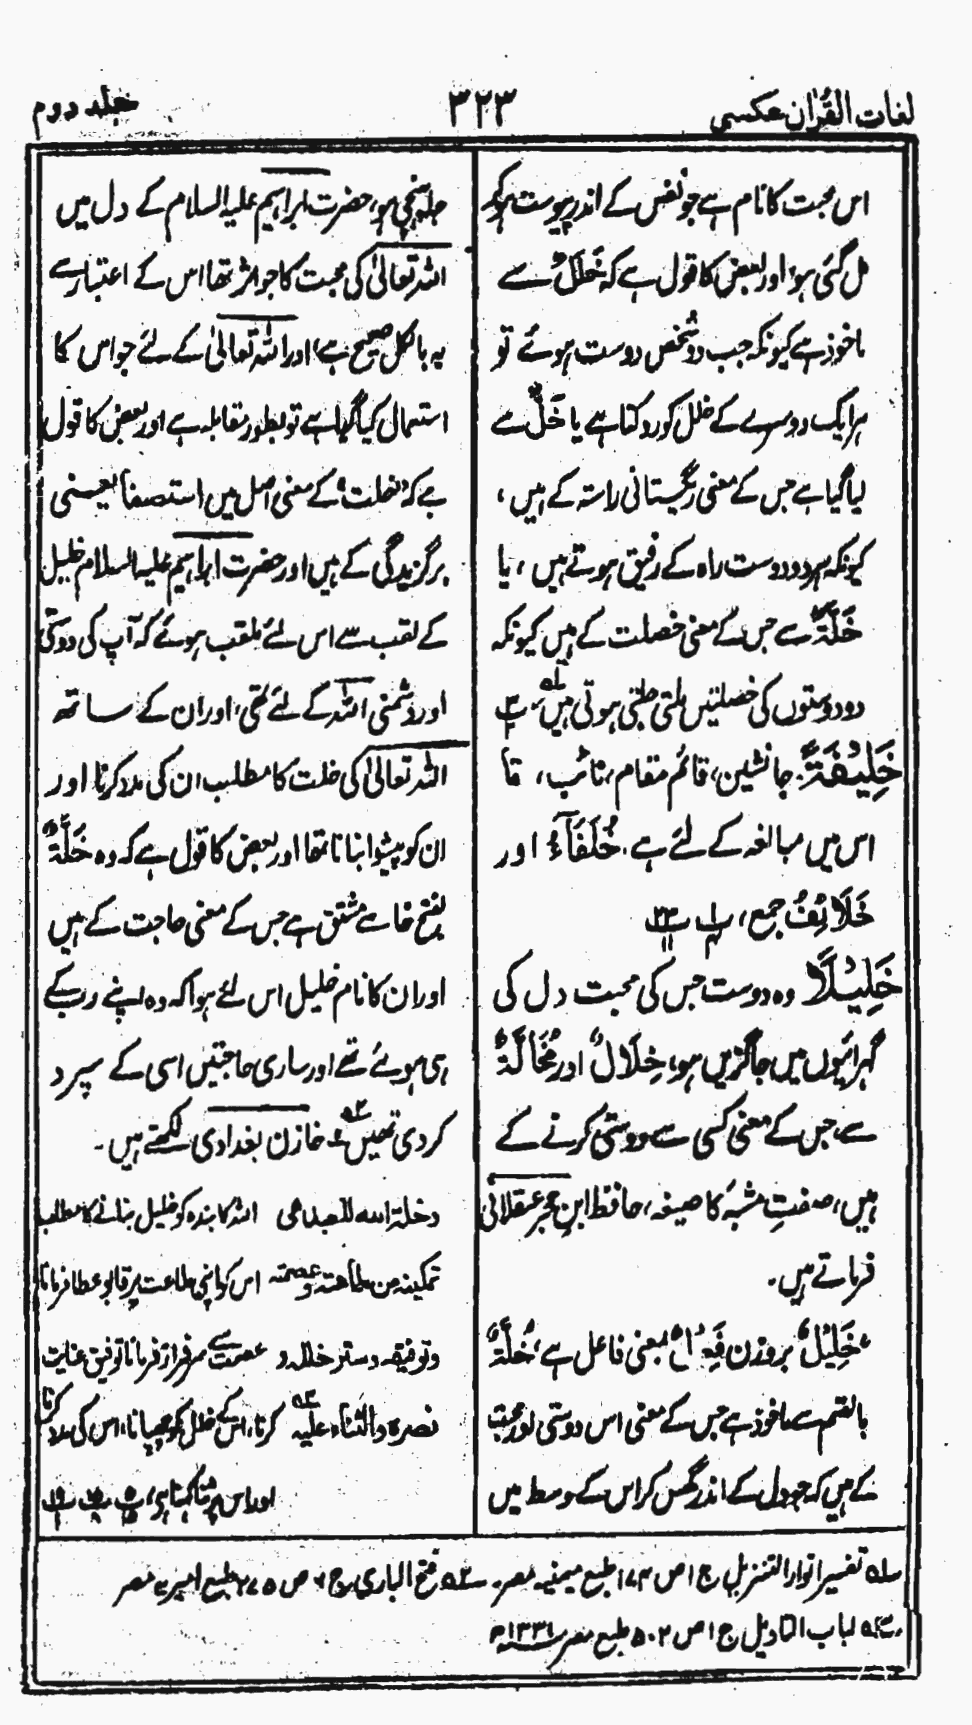 لغات القرآن عکسی
۳۲۳
جلد دوم
اس محبت کا نام ہے جو نفس کے اندر پیوست ہو کر
مل گئی ہو، اور بعض کا قول ہے کہ خَلَلٌ سے
ماخوذ ہے کیونکہ جب دو شخص دوست ہوئے تو
ہر ایک دوسرے کے خلل کو روکتا ہے یا خَلٌّ سے
لیا گیا ہے جس کے معنی ریگستانی راستہ کے ہیں،
کیونکہ ہر دو دوست راہ کے رفیق ہوتے ہیں، یا
خَلَّةٌ سے جس کے معنی خصلت کے ہیں کیونکہ
دو دوستوں کی خصلتیں ملتی جلتی ہوتی ہیں،
خَلِیْفَۃً۔ جانشین، قائم مقام، نائب، قا
اس میں مبالغہ کے لئے ہے۔ خُلَفَآءُ اور
خَلَائِفُ جمع،
خَلِیْلًا وہ دوست جس کی محبت دل کی
گہرائیوں میں جاگزیں ہو، خِلَالٌ اور مُخَالَّةٌ
سے، جس کے معنی کسی سے دوستی کرنے کے
ہیں، صفتِ مشبہ کا صیغہ، حافظ ابنِ حجر عسقلانی
فرماتے ہیں۔
خَلِیْلٌ بروزن بمعنی فاعل ہے، خُلَّةٌ
بالضم سے ماخوذ ہے جس کے معنی اس دوستی اور محبت
کے ہیں کہ جو دل کے اندر گھس کر اس کے وسط میں
جا پہنچی ہو، حضرت ابراہیم علیہ السلام کے دل میں
اللہ تعالیٰ کی محبت کا جو اثر تھا اس کے اعتبار سے
یہ بالکل صحیح ہے، اور اللہ تعالیٰ کے لئے جو اس کا
استعمال کیا گیا ہے تو بطور مقابلہ ہے اور بعض کا قول
ہے کہ "خلت" کے معنی اصل میں استصفاً یعنی
برگزیدگی کے ہیں اور حضرت ابراہیم علیہ السلام خلیل
کے لقب سے اس لئے ملقب ہوئے کہ آپ کی دوستی
اور دشمنی اللہ کے لئے تھی، اور ان کے ساتھ
اللہ تعالیٰ کی خلت کا مطلب ان کی مدد کرنا اور
ان کو پیشوا بنانا تھا اور بعض کا قول ہے کہ وہ خَلَّةٌ
بفتح خا سے مشتق ہے جس کے معنی حاجت کے ہیں
اور ان کا نام خلیل اس لئے ہوا کہ وہ اپنے رب کے
ہی ہو رہے تھے اور ساری حاجتیں اسی کے سپرد
کردی تھیں، خازن بغدادی لکھتے ہیں۔
وخلة الله للعبد هی اللہ کا بندہ کو خلیل بنانے کا مطلب
تمکینه من طاعته وعصمته اس کو اپنی طاعت پر قابو عطا فرمانا
وتوفیقه وستر خلله و عصمت سے سرفراز فرمانا توفیق عنایت
نصرة والثناء علیه کرنا، اس کے خلل کو چھپانا، اس کی مدد کرنا
اور اس پر ثنا کہنا ہے،
لہ تفسیر انوار التنزیل ج ۱ ص ۱۷۳ طبع میمنیہ مصر۔ ۲ہ فتح الباری ج ۶ ص ۲۷۵ طبع امیریہ مصر
۳ہ لباب التاویل ج ۱ ص ۵۰۲ طبع مصر ۱۳۳۱ھ